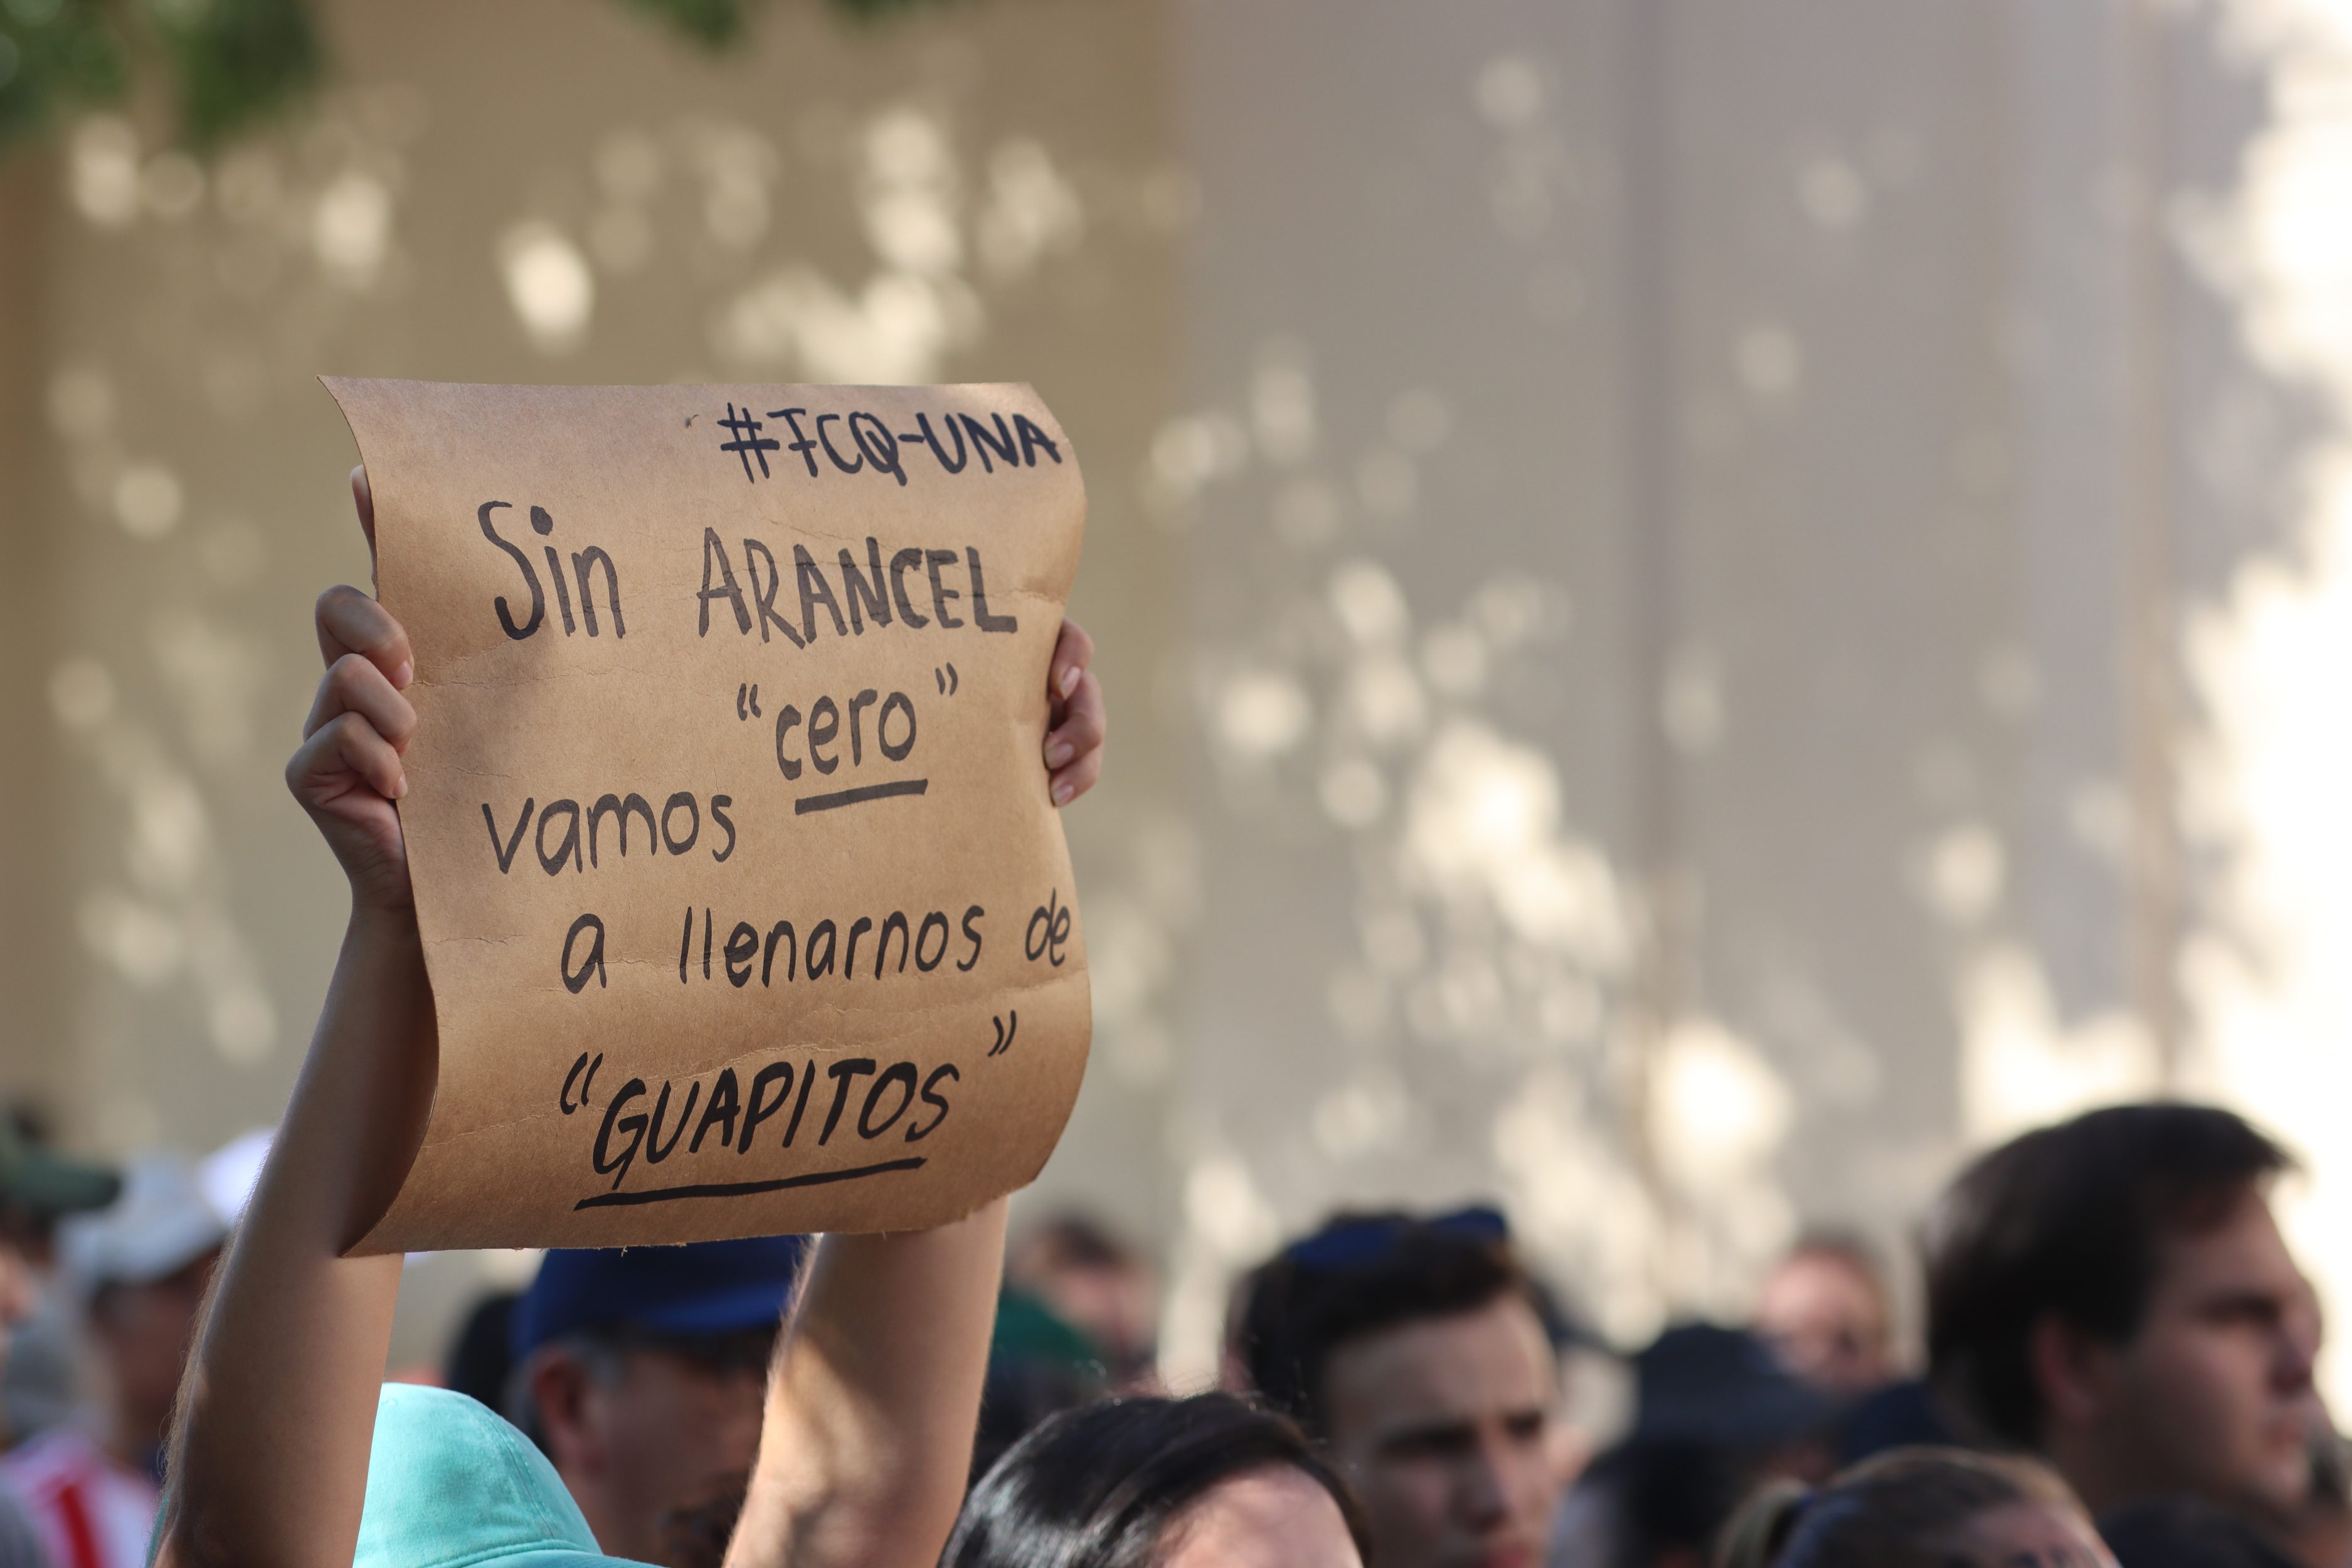 #FCQ-UNA
Sin ARANCEL
"cero"
vamos
a llenarnos de
"GUAPITOS"